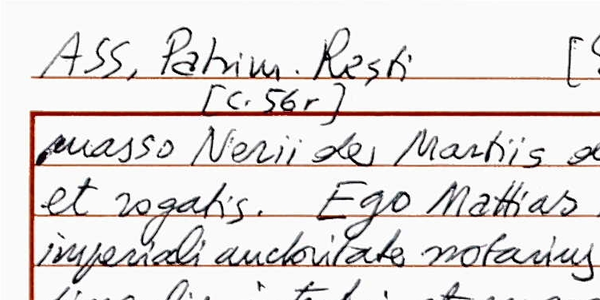 ASS, Patrim. Resti [
[c. 56r]
masso Nerii de Martiis
et rogatis. Ego Mattias
imperiali auctoritate notarius